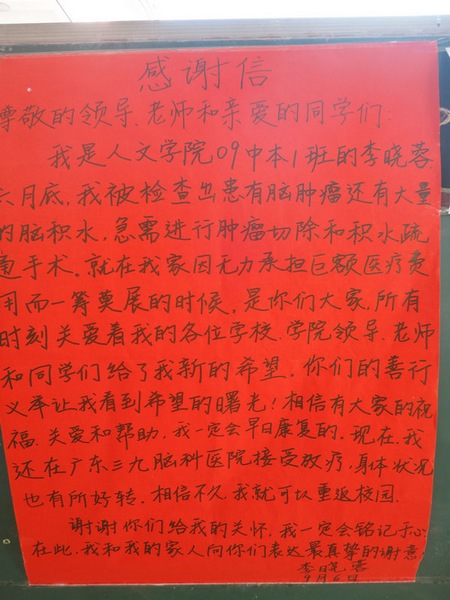 感谢信
尊敬的领导、老师和亲爱的同学们:
我是人文学院09中本1班的李晓蓉
六月底,我被检查出患有脑肿瘤还有大量
的脑积水,急需进行肿瘤切除和积水疏
通手术。就在我家因无力承担巨额医疗费
用而一筹莫展的时候,是你们大家,所有
时刻关爱着我的各位学校、学院领导、老师
和同学们给了我新的希望。你们的善行
义举让我看到希望的曙光!相信有大家的祝
福、关爱和帮助,我一定会早日康复的。现在,我
还在广东三九脑科医院接受放疗,身体状况
也有所好转。相信不久我就可以重返校园。
谢谢你们给我的关怀,我一定会铭记于心
在此,我和我的家人向你们表达最真挚的谢意
李晓蓉
9月6日